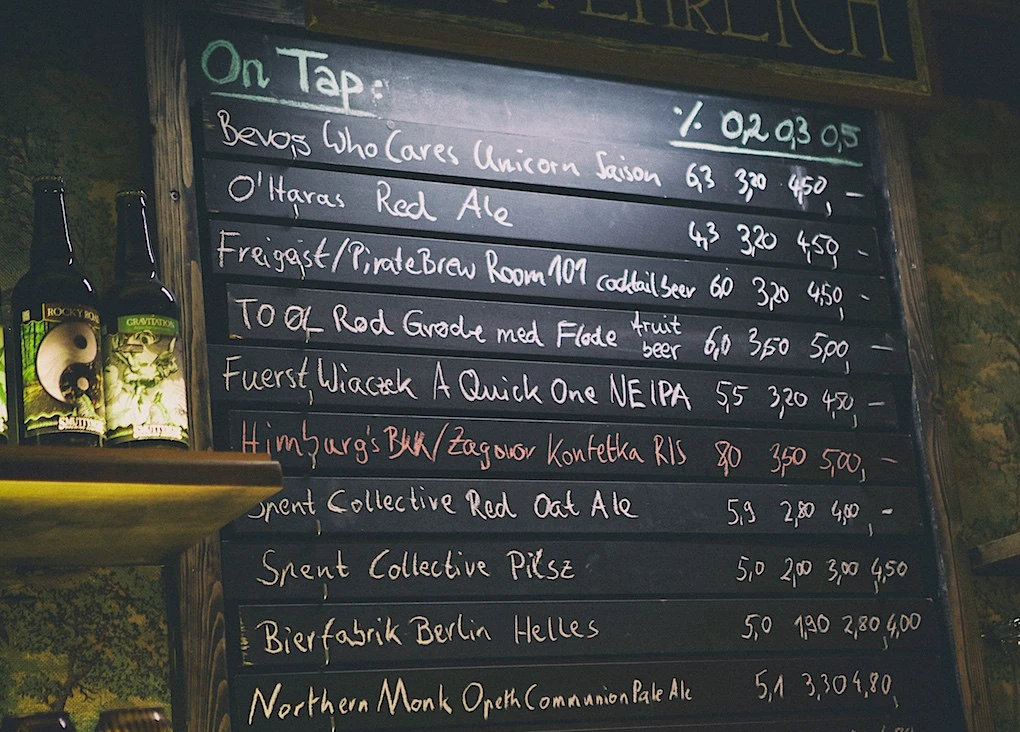 EHRLICH
On Tap: % 0,2 0,3 0,5
Bevog Who Cares Unicorn Saison 6,3 3,20 4,50, –
O'Haras Red Ale 4,3 3,20 4,50, -
Freigeist/PirateBrew Room 101 cocktail beer 6,0 3,20 4,50, -
TO ØL Rød Grøde med Fløde fruit beer 6,0 3,50 5,00, –
Fuerst Wiaczek A Quick One NEIPA 5,5 3,20 4,50, –
Himburg's BKK/Zagovor Kontetka RIS 8,0 3,50 5,00, –
Spent Collective Red Oat Ale 5,9 2,80 4,00, -
Spent Collective Pilsz 5,0 2,00 3,00 4,50
Bierfabrik Berlin Helles 5,0 1,90 2,80 4,00
Northern Monk Opeth Communion Pale Ale 5,1 3,30 4,80,
ROCKY ROAD
GRAVITATION
SMUTTYNOSE
SMUTTYNOSE